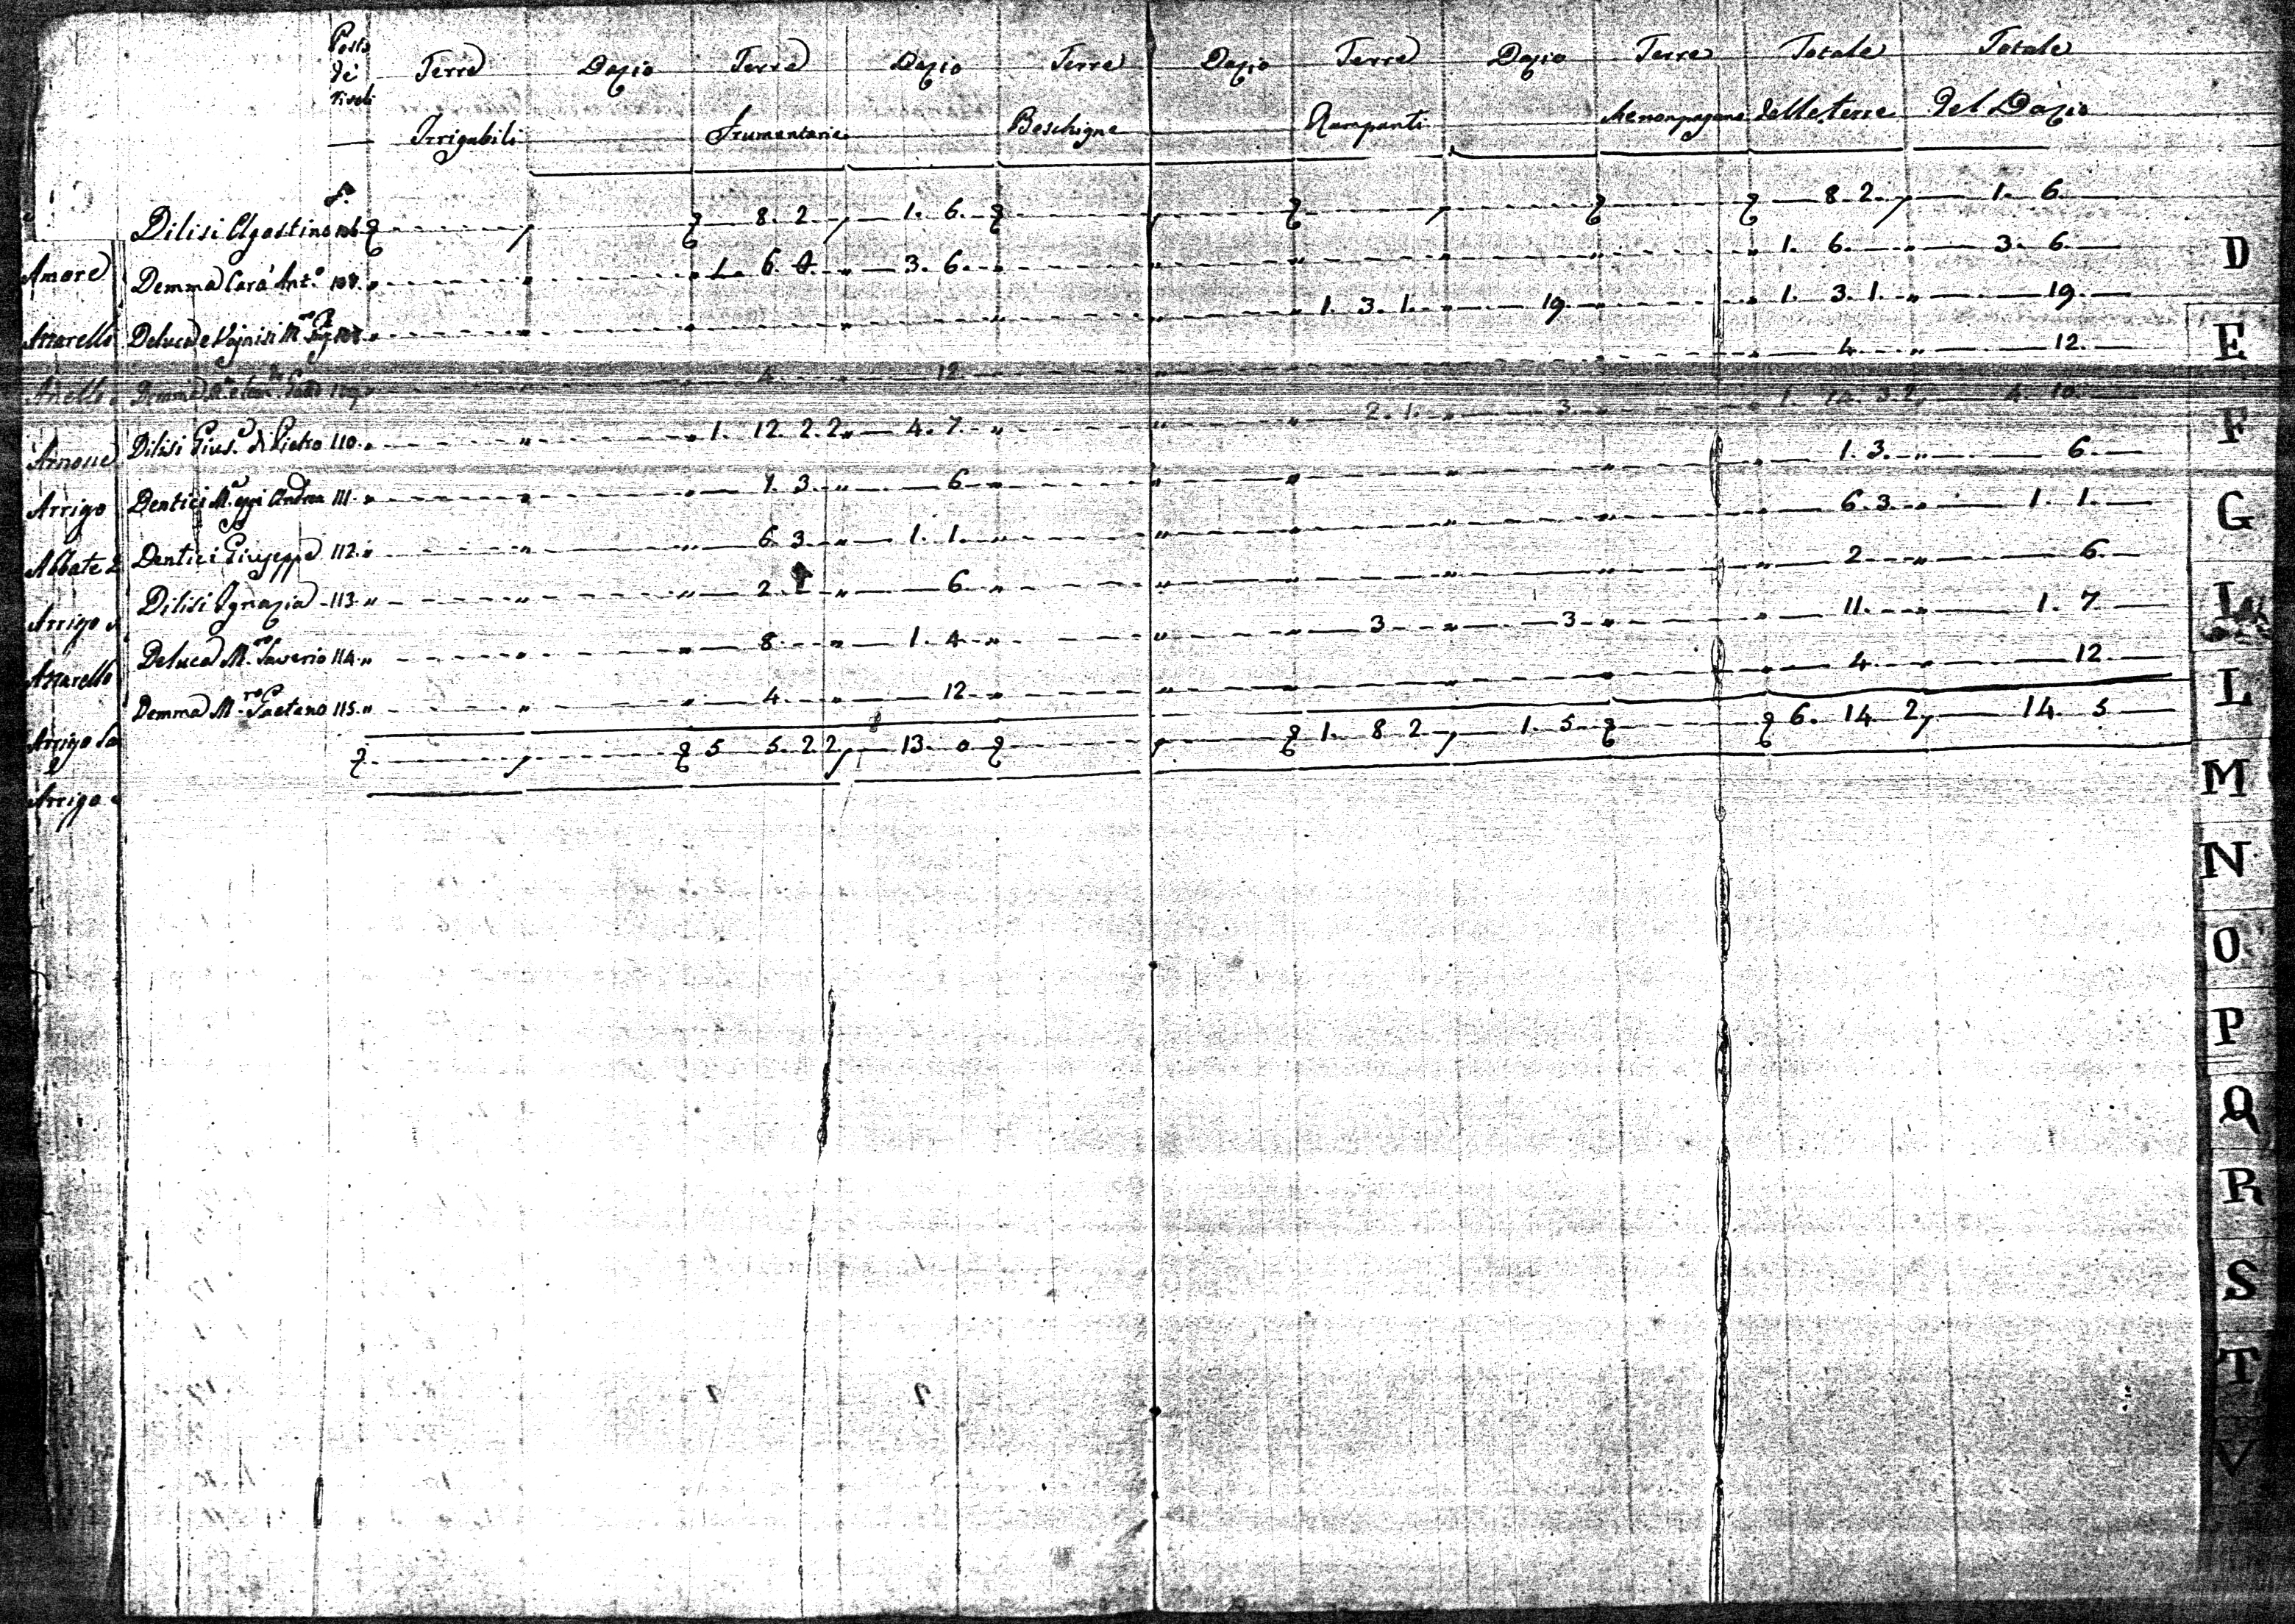 Posto Terre Dazio Terre Dazio Terre Dazio Terre Dazio Terre Totale Totale
de'
Irrigabili Frumentarie Boschigne Rampanti delle terre del Dazio
Dilisi Agostino 106 8. 2 1. 6. 8. 2 1. 6
Amore Demma Cará Ant.o 3. 6. 1. 6. 3. 6
Deluca e 1. 3. 1. 19. 1. 3. 1. 19
Demma 109 4 12 4 12.
Dilisi Gius.e di Pietro 110. 1. 12. 2. 2 4. 7. 2. 1. 3 4. 10
Arrigo Dentici Andrea 111. 1. 3. 6 1. 3. 6
Abbate Dentici Giuseppe 112. 6. 3 1. 1. 6. 3. 1. 1.
Arrigo Dilisi Ignazia 113. 2 6 2 6
Deluca M.ro Saverio 114. 8 1. 4 3 3 11. 1. 7
Demma M.ro Gaetano 115. 4 12 4 12
Arrigo 5 5. 2 2 13. 0 1. 8 2 1. 5 6. 14 2 14 5
Arrigo
D
E
F
G
I
L
M
N
O
P
Q
R
S
T
V